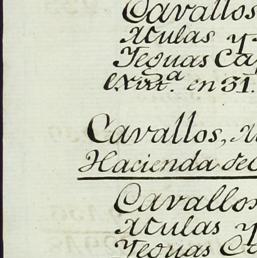 Cavallos
Mulas y
Yeguas Ca
exist.ª en 31.
Cavallos, M
Hacienda de
Cavallos
Mulas y
Yeguas Ca